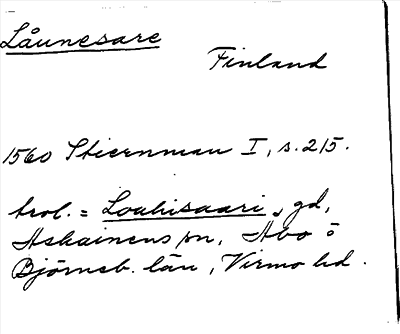 Låunesare
Finland
1560 Stiernman I, s. 215.
trol. = Louhisaari, gd,
Askainens sn, Åbo o
Björneb. län, Virmo hd.